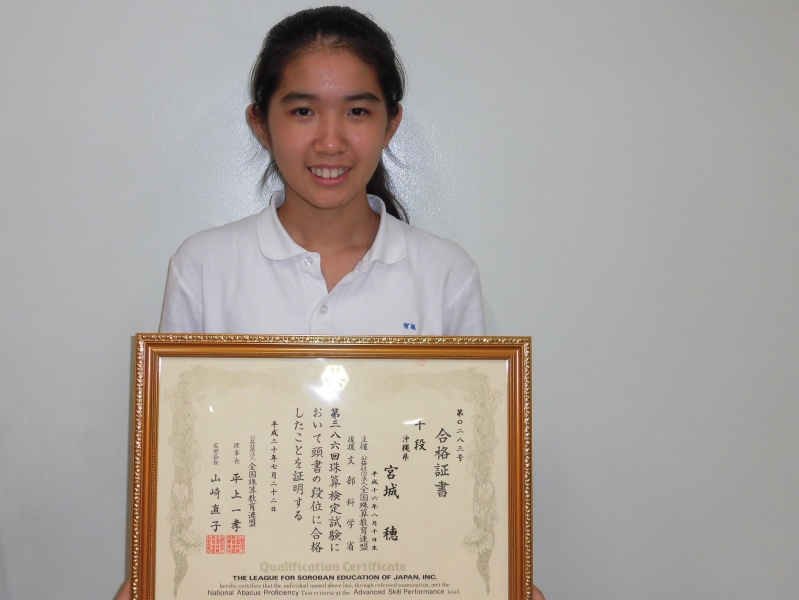 宮城
第〇二八三号
合格証書
十段
沖縄県 宮城 穂
平成十六年八月十日生
主催 公益社団法人全国珠算教育連盟
後援 文部科学省
第三八六回珠算検定試験に
おいて頭書の段位に合格
したことを証明する
平成三十年七月二十二日
公益社団法人 全国珠算教育連盟
理事長 平上一孝
名誉会長 山崎直子
Qualification Certificate
THE LEAGUE FOR SOROBAN EDUCATION OF JAPAN, INC.
hereby certifies that the individual named above has, through refereed examination, met the
National Abacus Proficiency Test criteria at the Advanced Skill Performance level.